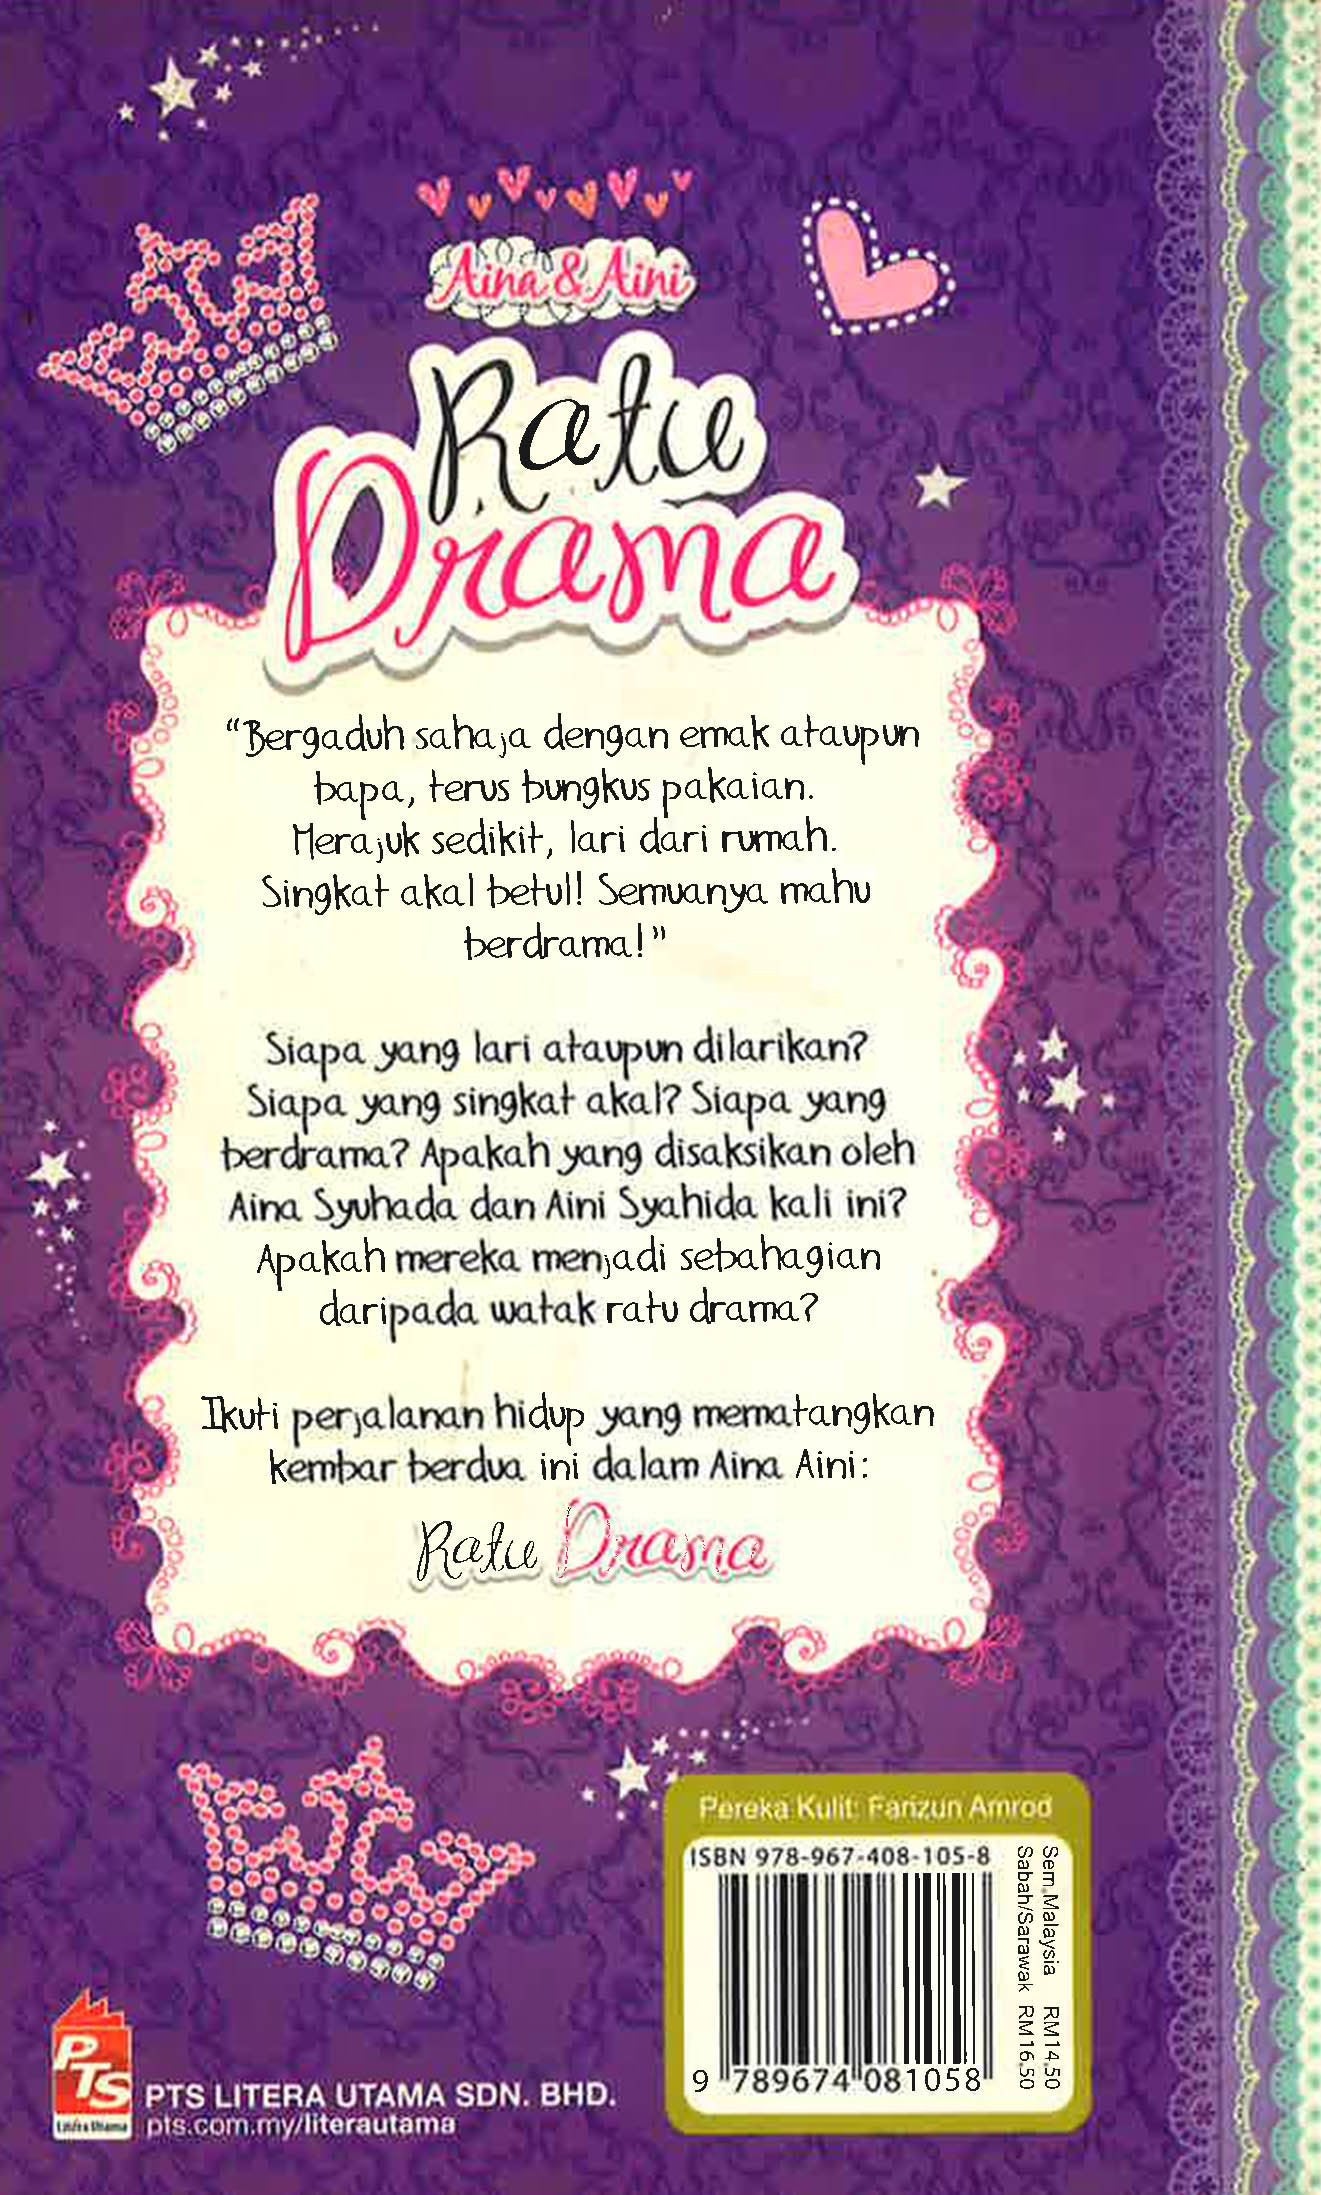 Aina & Aini
Ratu
Drama
“Bergaduh sahaja dengan emak ataupun
bapa, terus bungkus pakaian.
Merajuk sedikit, lari dari rumah.
Singkat akal betul! Semuanya mahu
berdrama!”
Siapa yang lari ataupun dilarikan?
Siapa yang singkat akal? Siapa yang
berdrama? Apakah yang disaksikan oleh
Aina Syuhada dan Aini Syahida kali ini?
Apakah mereka menjadi sebahagian
daripada watak ratu drama?
Ikuti perjalanan hidup yang mematangkan
kembar berdua ini dalam Aina Aini:
Ratu Drama
Pereka Kulit: Farizun Amrod
ISBN 978-967-408-105-8
9 789674 081058
Sem.Malaysia RM14.50
Sabah/Sarawak RM16.50
PTS
Litera Utama
PTS LITERA UTAMA SDN. BHD.
pts.com.my/literautama